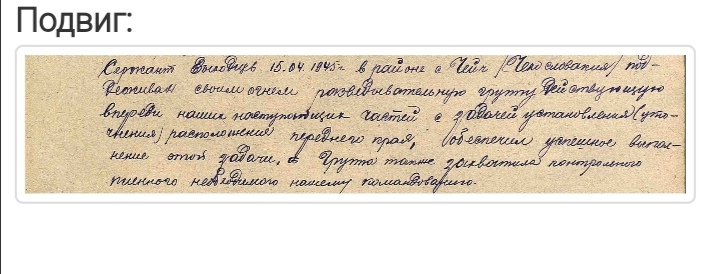 Подвиг:
Сержант Выходцев 15.04.1945г. в районе с Чейч /Чехословакия/ под-
держивая своим огнем разведывательную группу действующую
впереди наших наступающих частей с задачей установления (уто-
чнения) расположения переднего края, обеспечил успешное выпол-
нение этой задачи, а группа также захватила контрольного
пленного необходимого нашему командованию.